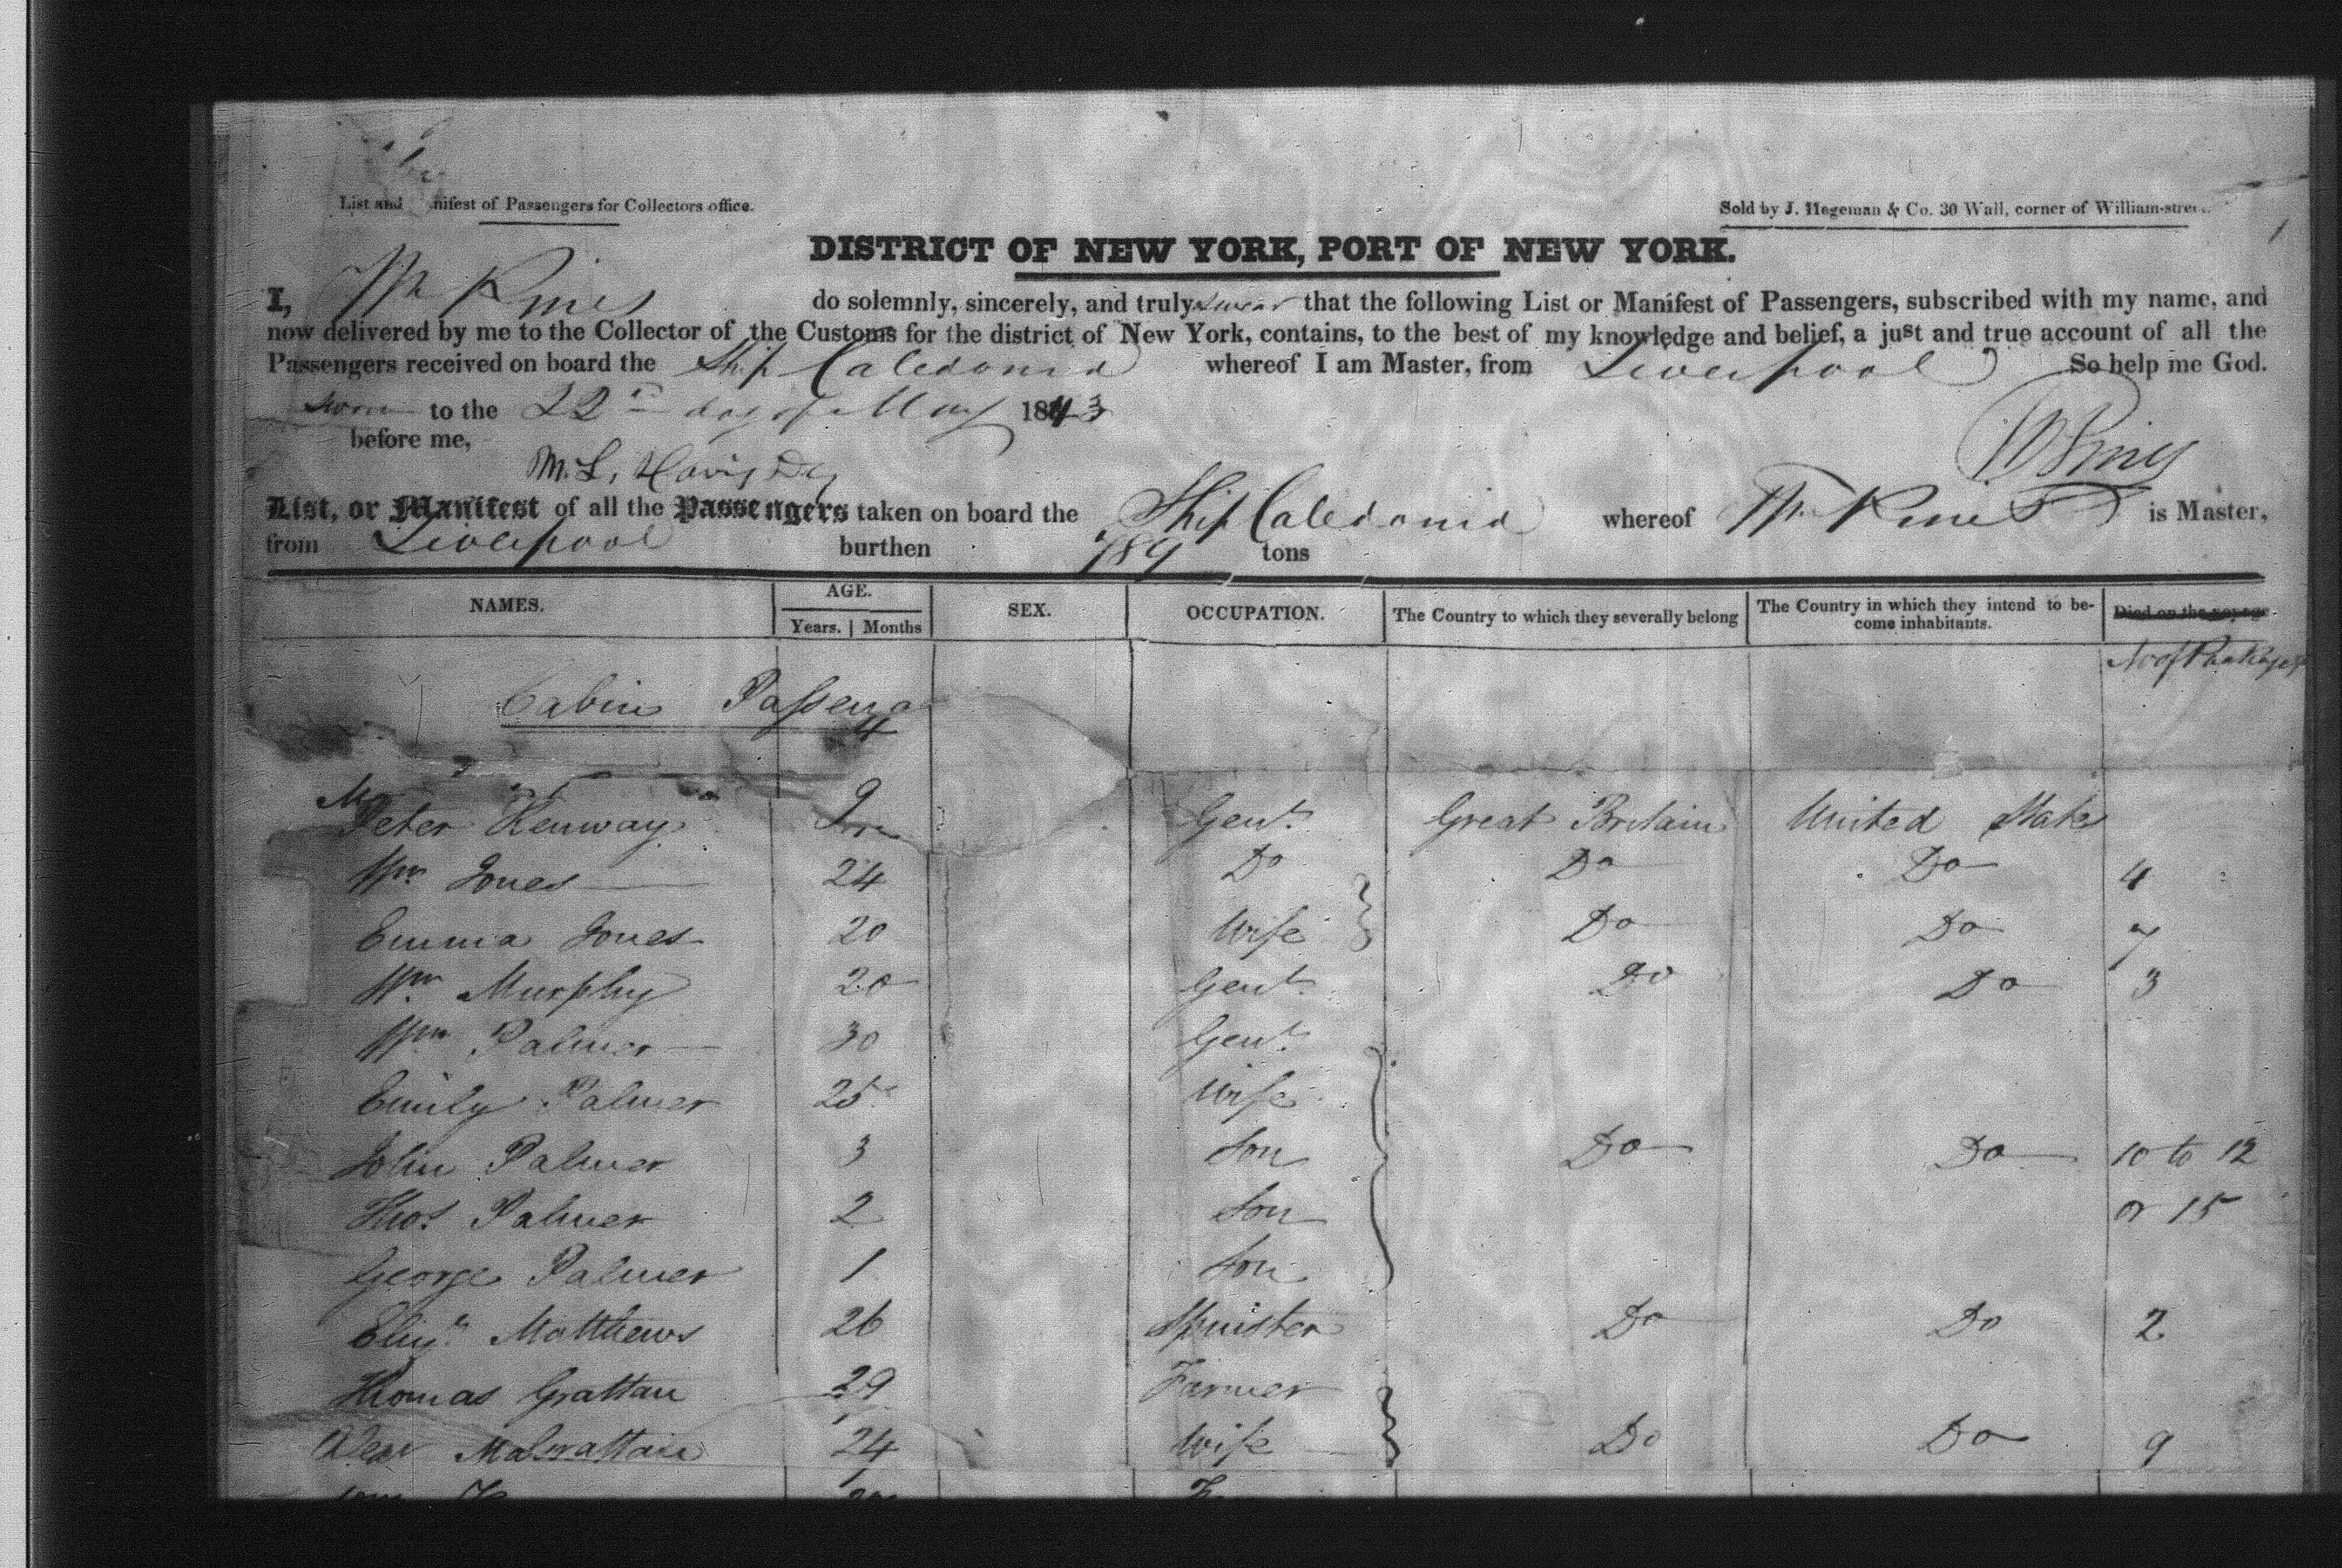 List and nifest of Passengers for Collectors office.
Sold by J. Hegeman & Co. 30 Wall, corner of William-street.
DISTRICT OF NEW YORK, PORT OF NEW YORK.
I, do solemnly, sincerely, and truly swear that the following List or Manifest of Passengers, subscribed with my name, and
now delivered by me to the Collector of the Customs for the district of New York, contains, to the best of my knowledge and belief, a just and true account of all the
Passengers received on board the Ship Caledonia whereof I am Master, from Liverpool So help me God.
Sworn to the 22nd day of May 1843
before me,
M. L. Davis
List, or Manifest of all the Passengers taken on board the Ship Caledonia whereof is Master,
from Liverpool burthen 789 tons
NAMES. AGE. SEX. OCCUPATION. The Country to which they severally belong The Country in which they intend to be-
Years. Months come inhabitants. Died on the voyage
No of Packages
Cabin Passeng
Mr
Peter Kenway Gent. Great Britain United States
Wm Jones 24 Do Do Do 4
Emma Jones 20 Wife Do Do 7
Wm Murphy 20 Gent. Do Do 3
Wm Palmer 30 Gent.
Emily Palmer 25 Wife
John Palmer 3 Son Do Do 10 to 12
Thos Palmer 2 Son or 15
George Palmer 1 Son
Elizth Matthews 26 Spinster Do Do 2
Thomas Grattan 29 Farmer
24 Wife Do Do 9